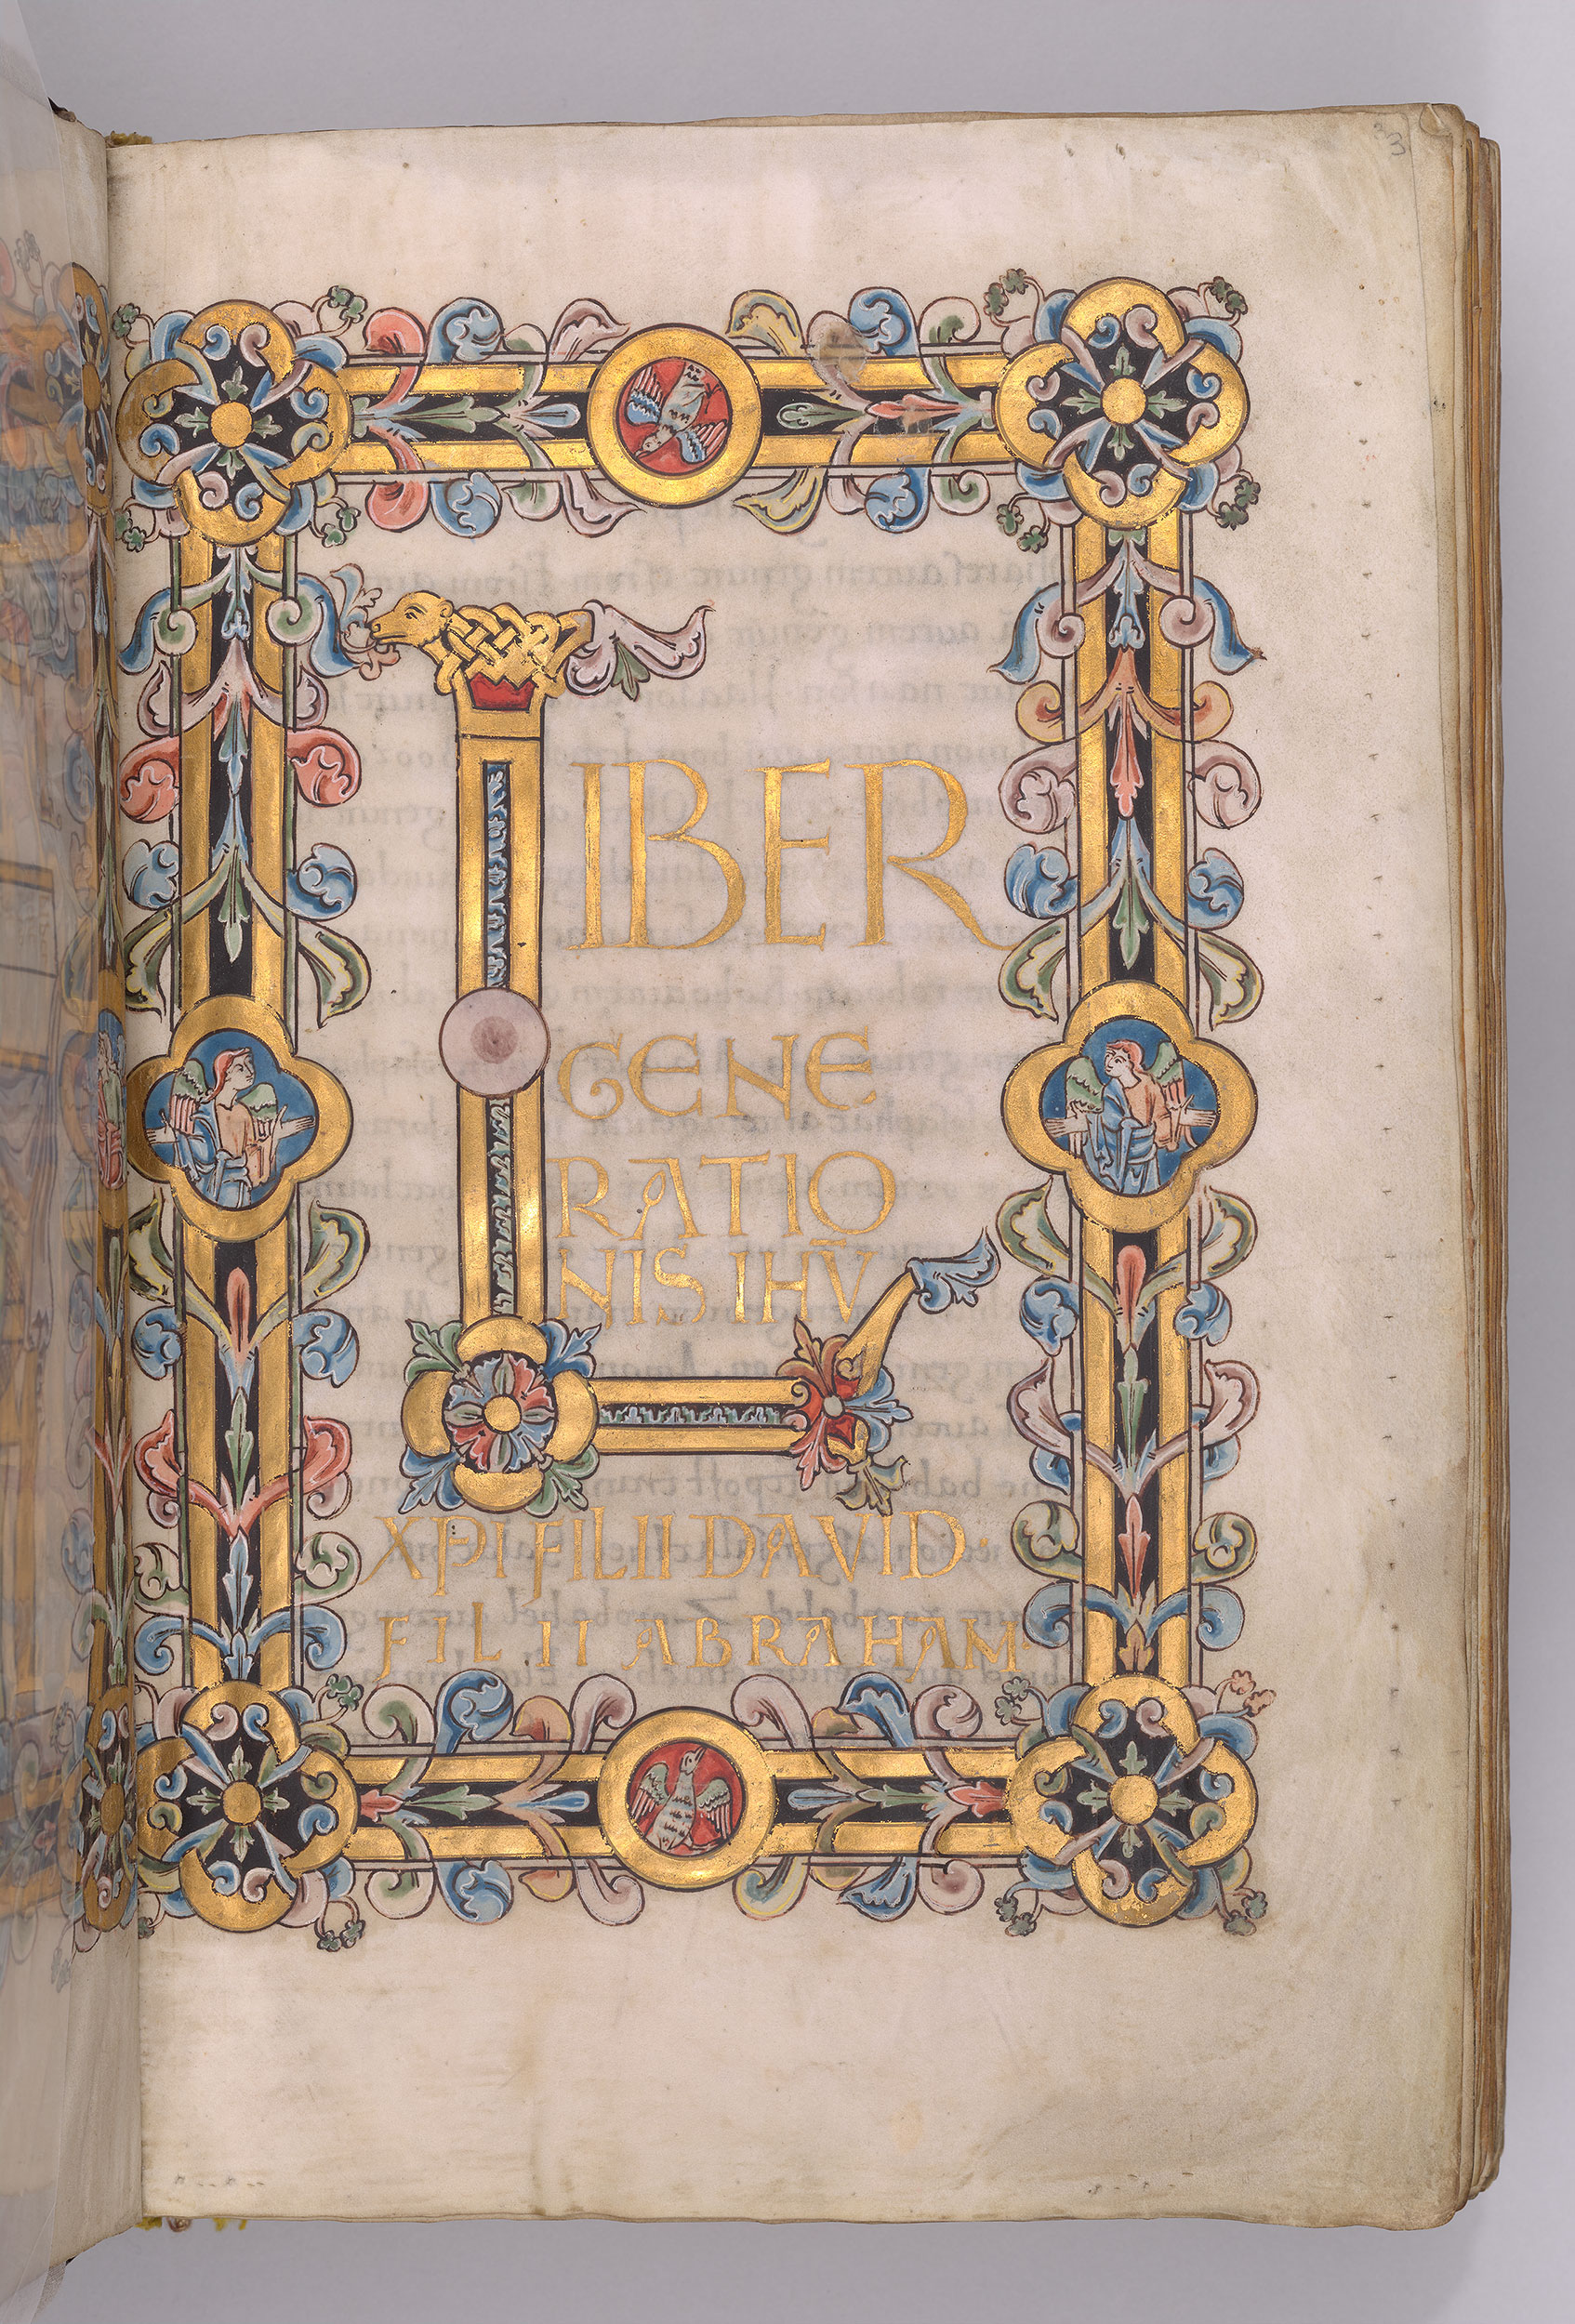 LIBER
GENE
RATIO
NIS IHŪ
XPI FILII DAVID·
FILII ABRAHAM·